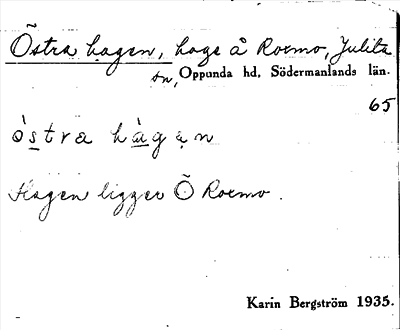 Östra hagen, hage å Roxmo, Julita
sn, Oppunda hd, Södermanlands län.
65
ö̀stra hàgạn
Hagen ligger Ö Roxmo.
Karin Bergström 1935.